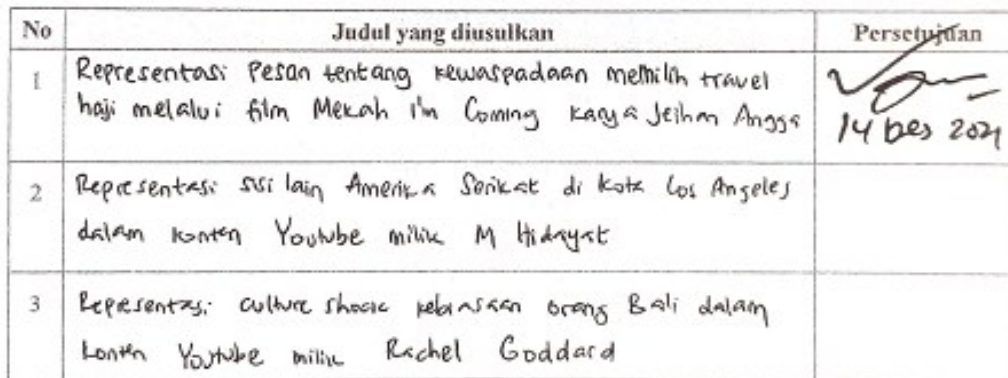 No Judul yang diusulkan Persetujuan
1 Representasi Pesan tentang kewaspadaan memilih travel
haji melalui film Mekah I'm Coming karya Jeihan Angga
14 Des 2021
2 Representasi sisi lain Amerika Serikat di Kota Los Angeles
dalam konten Youtube milik M Hidayat
3 Representasi culture shock kebiasaan orang Bali dalam
konten Youtube milik Rachel Goddard